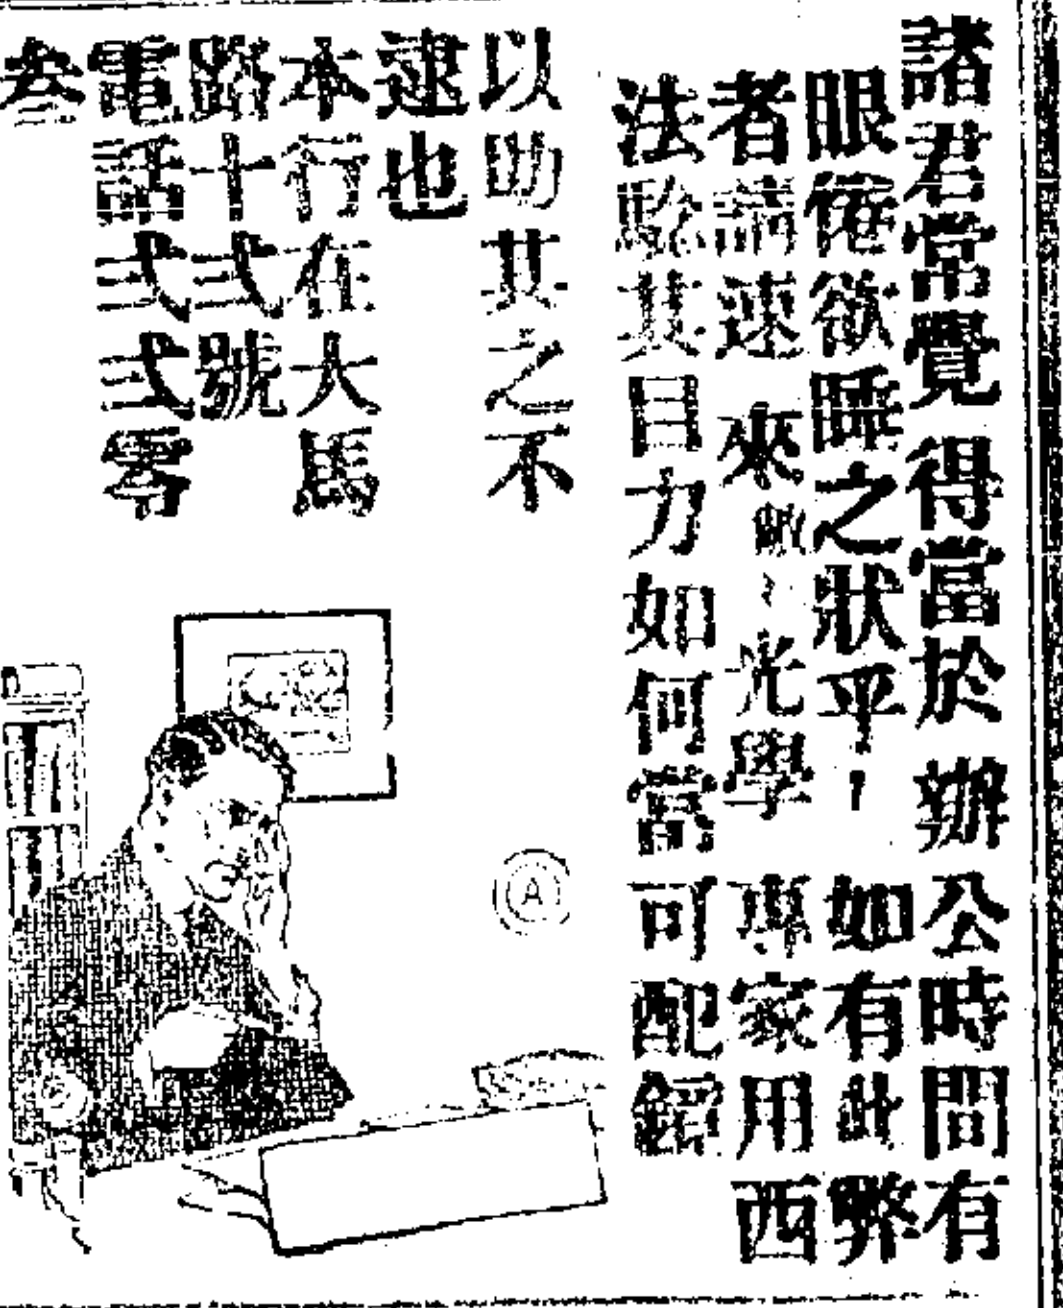 諸君常覺得當於辦公時間有
眼倦欲睡之狀乎如有此弊
者請速來敝光學專家用西
法驗其目力如何當可配鏡
以助其之不
逮也
本行在大馬
路十弍號
電話弍弍零
叁
A